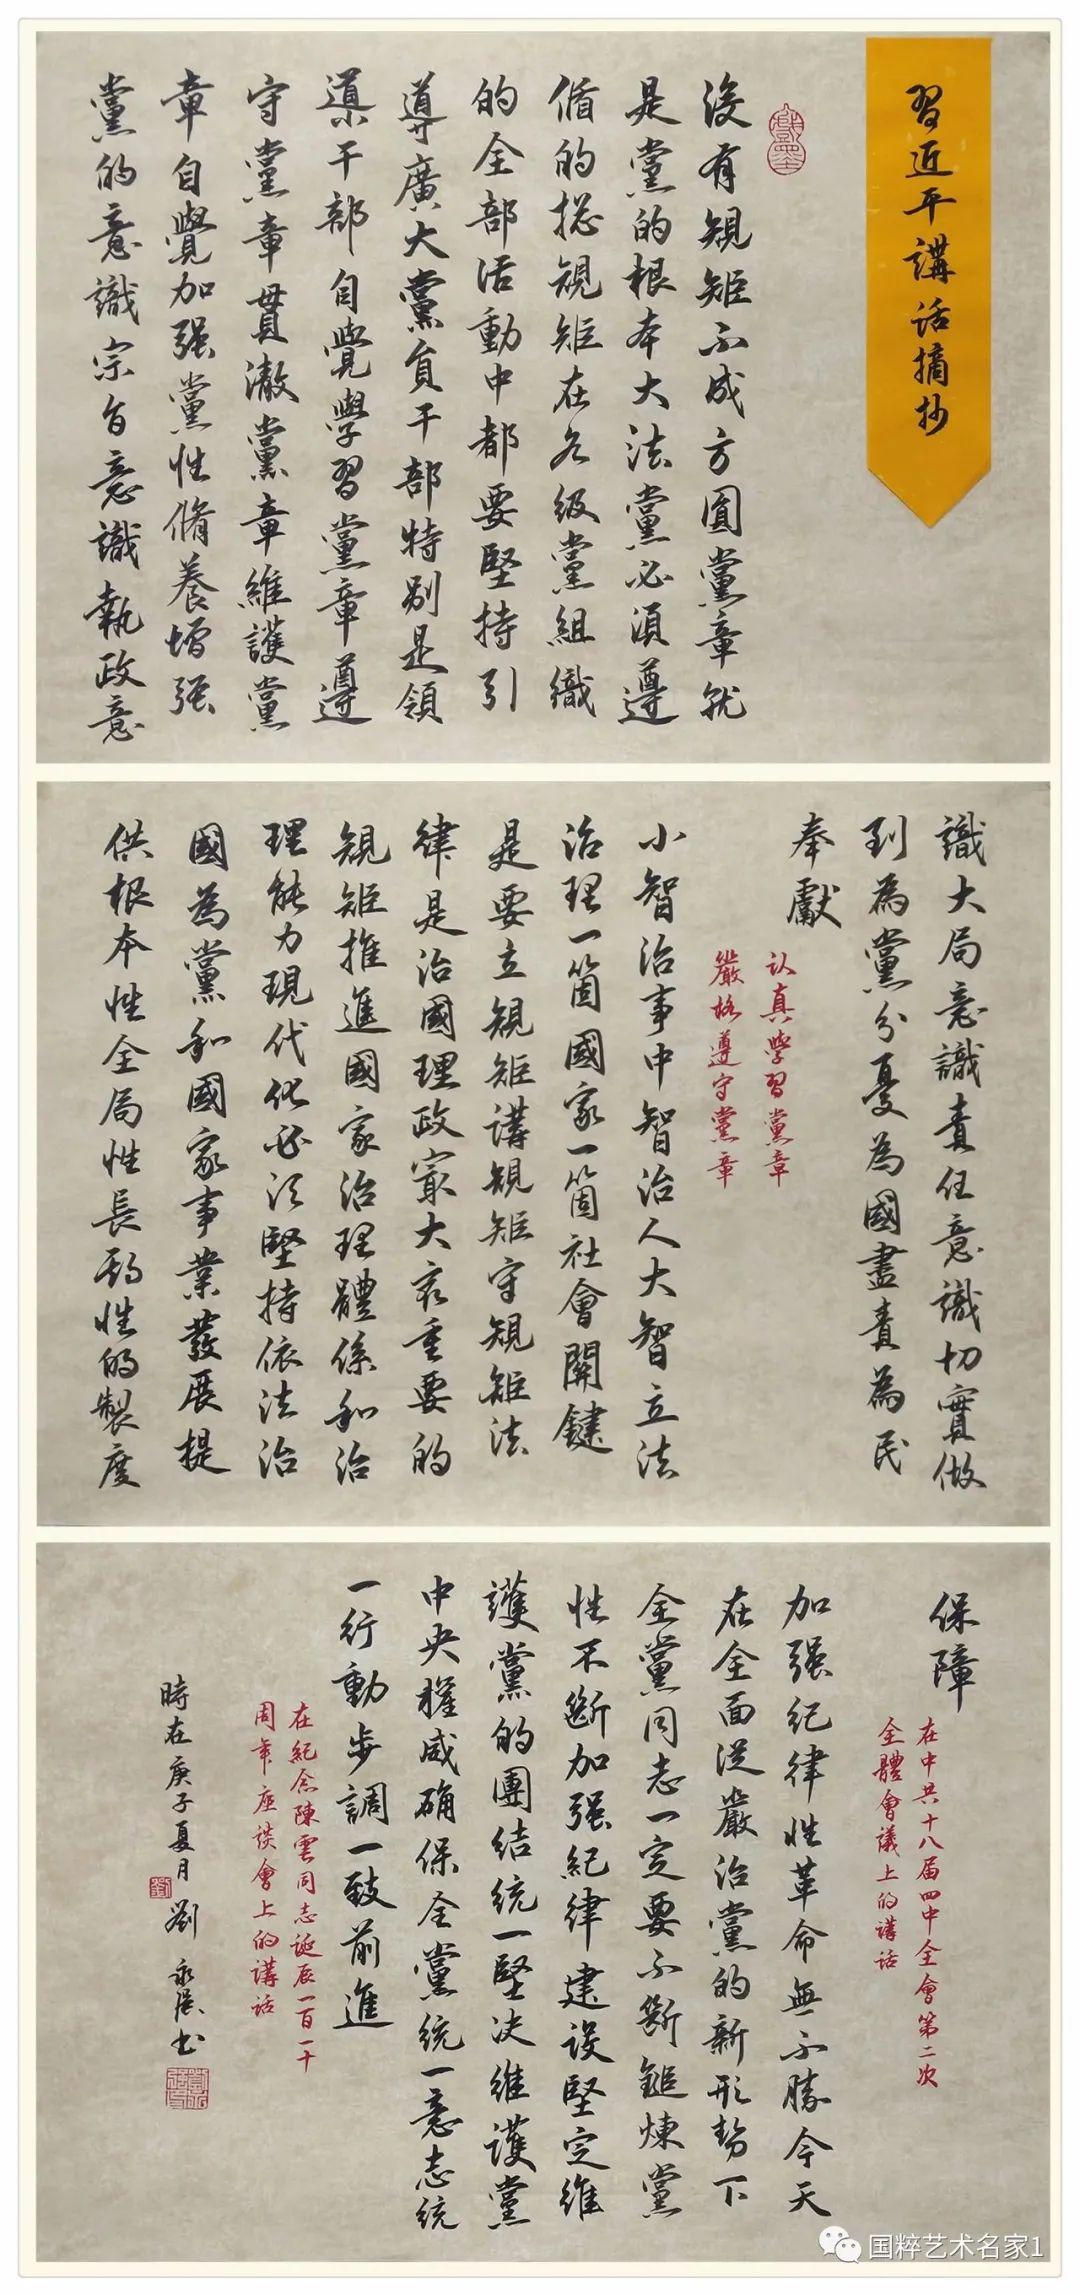 習近平講話摘抄
没有規矩不成方圓黨章就
是黨的根本大法黨必須遵
循的捴規矩在各級黨組織
的全部活動中都要堅持引
導廣大黨員干部特别是領
導干部自覺學習黨章遵
守黨章貫澈黨章維護黨
章自覺加强黨性脩養增强
黨的意識宗旨意識執政意
識大局意識責任意識切實做
到為黨分憂為國盡責為民
奉獻
认真學習黨章
嚴格遵守黨章
小智治事中智治人大智立法
治理一箇國家一箇社會關鍵
是要立規矩講規矩守規矩法
律是治國理政最大最重要的
規矩推進國家治理體係和治
理能力現代化必须堅持依法治
國為黨和國家事業發展提
供根本性全局性長期性的製度
保障
在中共十八届四中全會第二次
全體會議上的講话
加强纪律性革命無不勝今天
在全面從嚴治黨的新形勢下
全黨同志一定要不斷鎚煉黨
性不斷加强紀律建设堅定維
護黨的團结統一堅决維護黨
中央權威确保全黨統一意志統
一行動步調一致前進
在紀念陳雲同志誕辰一百一十
周年座談會上的講話
時在庚子夏月劉永溪书
国粹艺术名家1